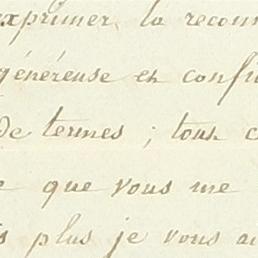 exprimer la reconn
généreuse et confi
de termes ; tous c
que vous me
plus je vous au